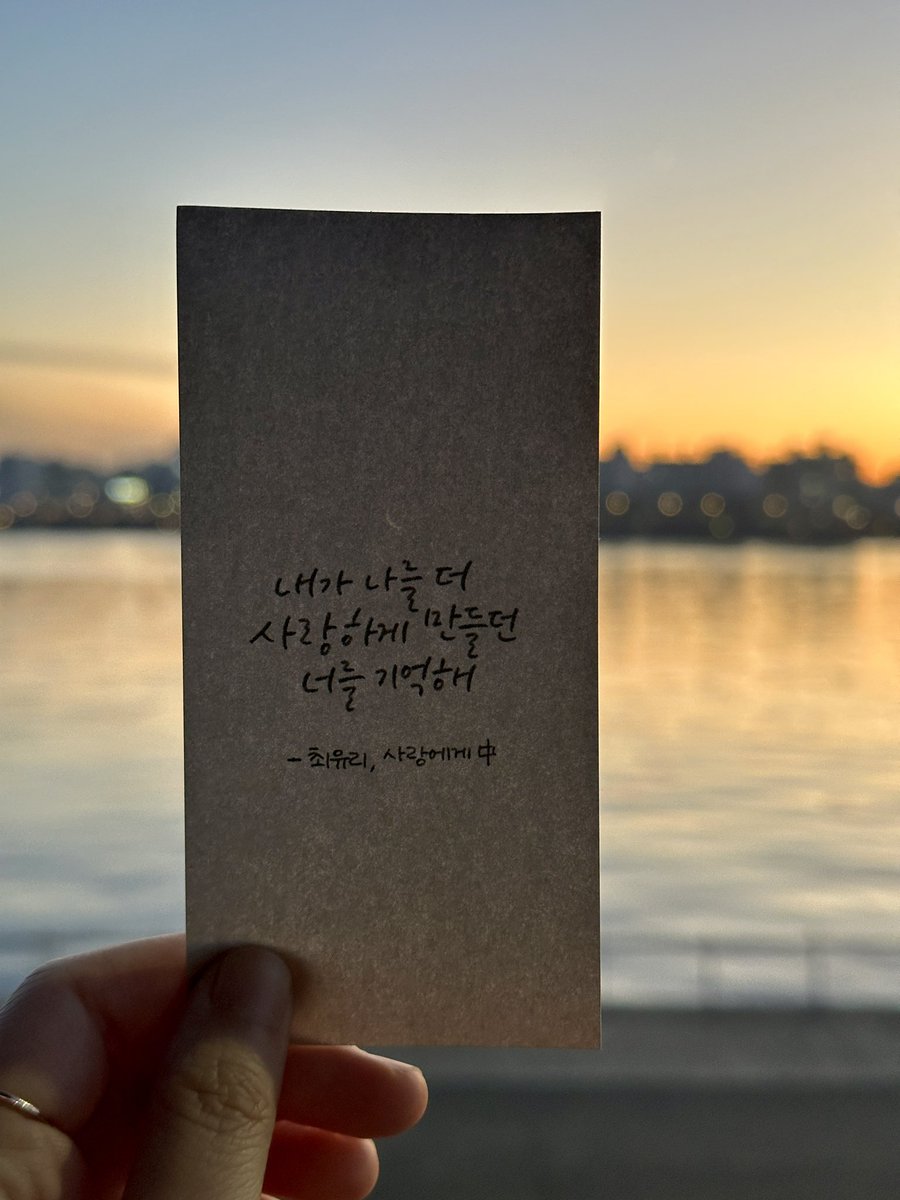 내가 나를 더
사랑하게 만들던
너를 기억해
- 최유리, 사랑에게 中